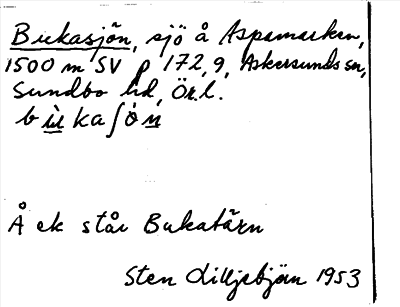 Bickasjön, sjö å Aspamarken,
1500 m SV p 172,9, Askersunds sn,
Sundbo hd, Ör.l.
bùkaʃón
Å ek står Bukatärn
Sten Lilljebjörn 1953